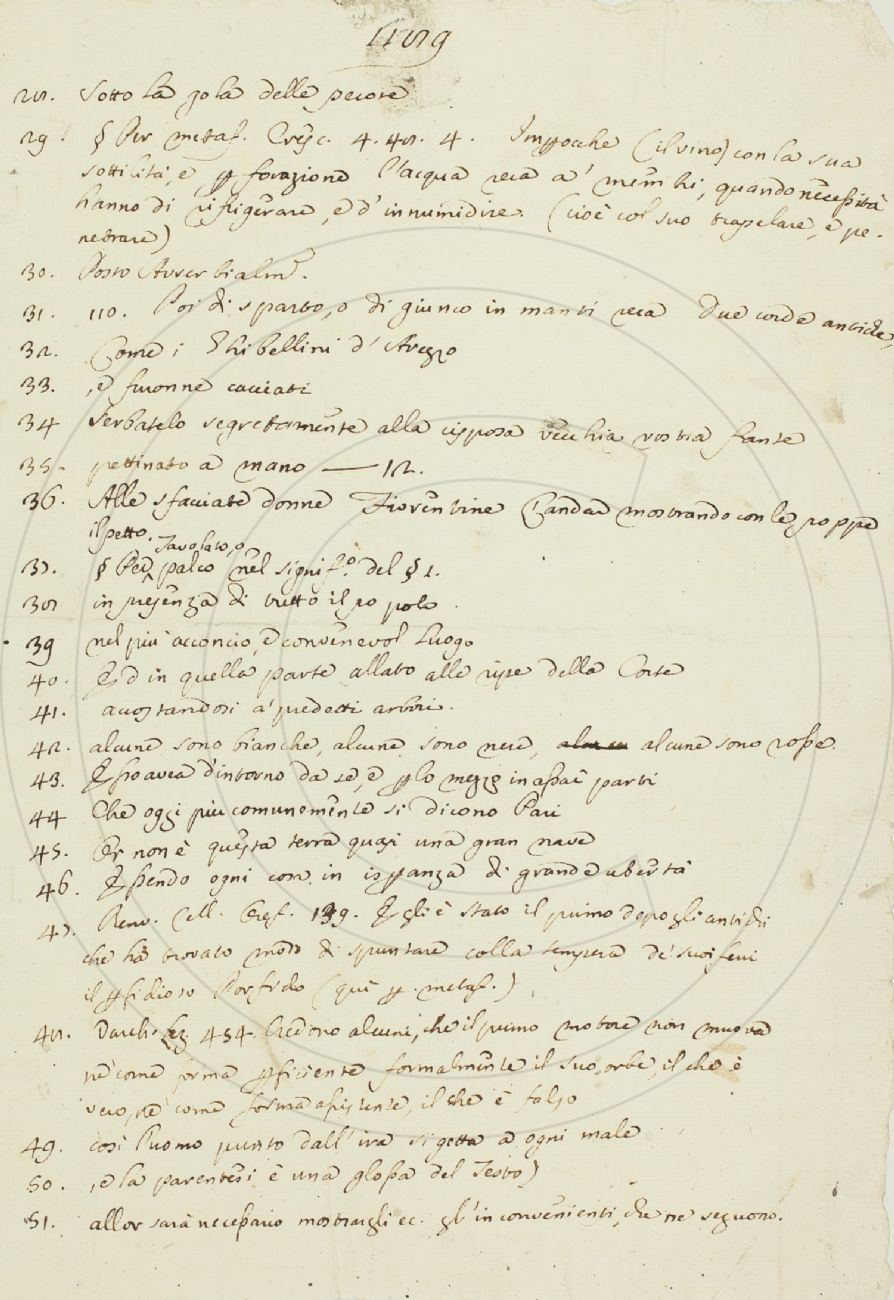 28. Sotto la gola delle pecore
29. § Per metaf. Cresc. 4. 48. 4. Imppocche (il vino) con la sua
sottilità, e pforazione l'acqua reca a' membri, quando necessità
hanno di rifrigerare, e d'innumidire. (cioè col suo trapelare, e pe-
netrare)
30. Posto Avverbialm.
31. 110. Poi di sparto, o di giunco in manti reca Due corde antiche,
32. Come i Ghibellini d'Arezzo
33. , e furonne cacciati
34 Serbatelo segretamente alla vostra fante
35. pettinato a mano — 12.
36. Alle sfacciate donne Fiorentine L'andar mostrando con le poppe
il petto.
37. § Per Tavolato, o palco nel signif.º del § 1.
38 in presenza di tutto il popolo.
39 nel più acconcio, e convenevol luogo
40. Ed in quella parte allato alle ripe della Corte
41. accostandosi a' predetti arbori.
42. alcune sono bianche, alcune sono nere, alcune sono rosse.
43. d'intorno da se, e plo mezzo in assai parti
44 Che oggi più comunemente si dicono Pari
45. Or non è questa terra quasi una gran nave
46. Essendo ogni cosa in isperanza di grande ubertà
47. Benv. Cell. Oref. 139. Egli è stato il primo dopo gli antichi
che ha trovato modo di spuntare colla tempera de' suoi ferri
il pfidioso Porfido (qui p. metaf.)
48. Varch. Lez. 454. Credono alcuni, che il primo motore non muova
nè come forma pficiente formalmente il suo orbe, il che è
vero, nè come forma assistente, il che è falso
49. così l'uomo punto dall'ira si getta a ogni male
50. , e la parentesi è una glossa del Testo)
51. allor sarà necessario mostrargli ec. gl'inconvenienti, che ne seguono.